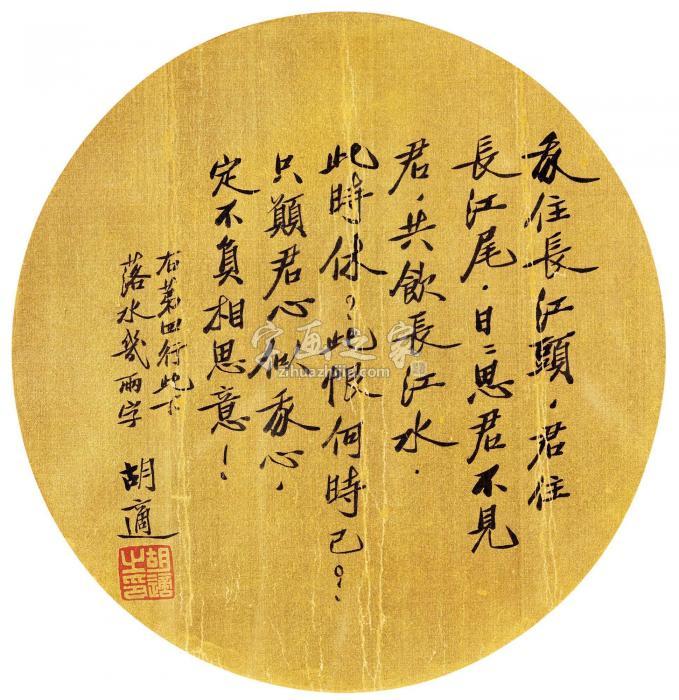 我住長江頭,君住
長江尾.日〻思君不見
君,共飲長江水.
此時休?此恨何時已?
只願君心似我心,
定不負相思意!
右第四行此下
落水幾兩字
胡適
胡適之印
字画之家
zihuazhijia.com